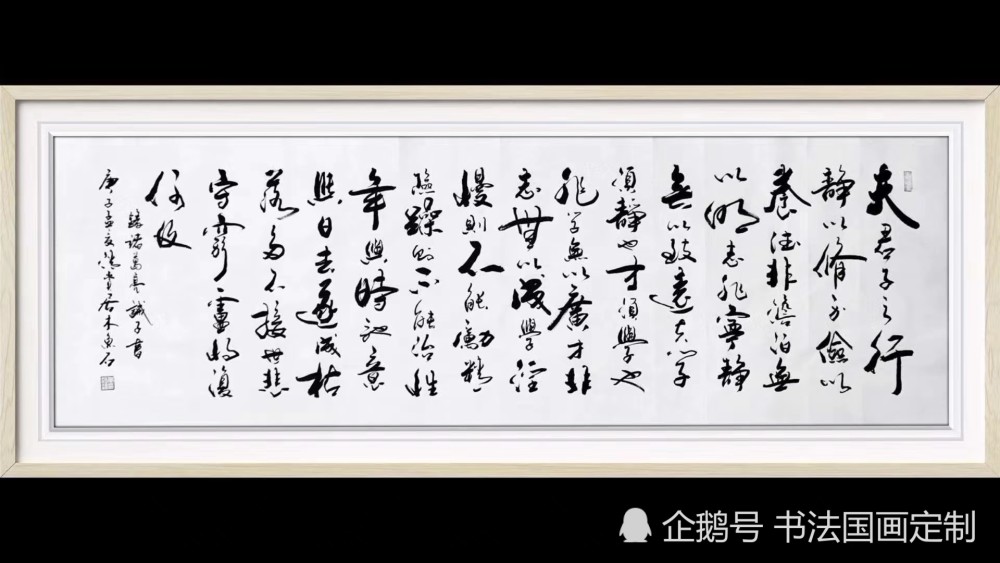 夫君子之行
静以脩身儉以
養德非澹泊無
以明志非寧静
無以致遠夫学
須静也才須學也
非学無以廣才非
志無以成學淫
慢則不能勵精
險躁則不能冶性
年與時馳意
與日去遂成枯
落多不接世悲
守窮廬將復
何及
錄諸葛亮誡子書
庚子孟夏
企鹅号 书法国画定制